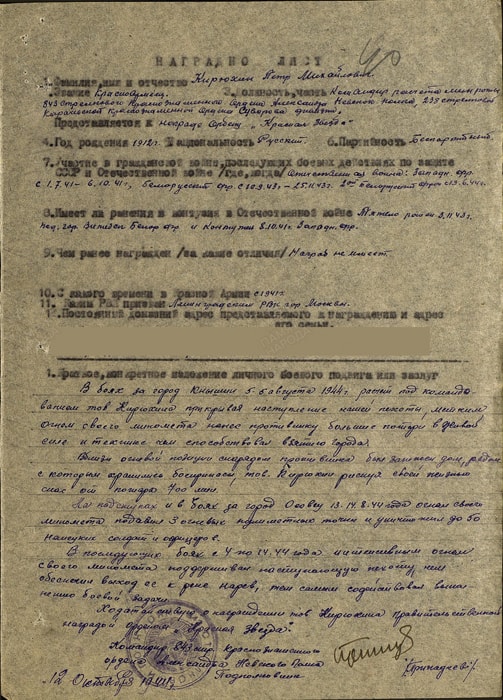 НАГРАДНО ЛИСТ
1. Фамилия, имя и отчество Кирюхин Петр Михайлович
2. Звание Красноармеец 3. Должность, часть Командир расчета минроты
843 стрелкового Краснознаменного Ордена Александра Невского полка, 238 стрелковой
Карачевской Краснознаменной Ордена Суворова дивизии
Представляется к награде Ордену "Красная Звезда"
4. Год рождения 1912г. Национальность Русский. 6. Партийность Беспартийный
7. Участие в гражданской войне, последующих боевых действиях по защите
СССР и Отечественной войне /где, когда/ Отечественная война: Западн. фр.
с 1.7.41 - 6.10.41, Белорусский фр. с 10.9.43 - 25.11.43. 2ой Белорусский фронт с 19.6.44г.
8. Имеет ли ранения и контузии в Отечественной войне Тяжело ранен 3.11.43г.
под гор. Белор. фр. и Контузия 5.10.41г. Западн. фр.
9. Чем ранее награжден /за какие отличия/ Наград не имеет.
10. С какого времени в Красной Армии с 1941г.
11. Каким РВК призван Ленинградским РВК гор. Москвы.
12. Постоянный домашний адрес представляемого к награждению и адрес
его семьи.
1. Краткое, конкретное изложение личного боевого подвига или заслуг
В боях за город Кнышин 5-6 августа 1944г. расчет под командо-
ванием тов Кирюхина прикрывая наступление нашей пехоты, метким
огнем своего миномета нанес противнику большие потери в живой
силе и технике чем способствовал взятию города.
Вблизи огневой позиции снарядом противника был зажжен дом, рядом
с которым хранились боеприпасы тов. Кирюхин рискуя своей жизнью
спас от пожара 400 мин.
На подступах и в боях за город Осовец 13-14.8.44 года огнем своего
миномета подавил 3 огневых пулеметных точки и уничтожил до 50
немецких солдат и офицеров.
В последующих боях с 4 по 14.44 года интенсивным огнем
своего миномета поддерживал наступающую пехоту чем
обеспечил выход ее к реке Нарев, тем самым содействовал выпол-
нению боевой задачи
Ходатайствую о награждении тов Кирюхина правительственной
наградой орденом "Красная Звезда"
Командир 843 стр. Краснознаменного
ордена Александра Невского Полка
Подполковник
12 Октября 1944г.